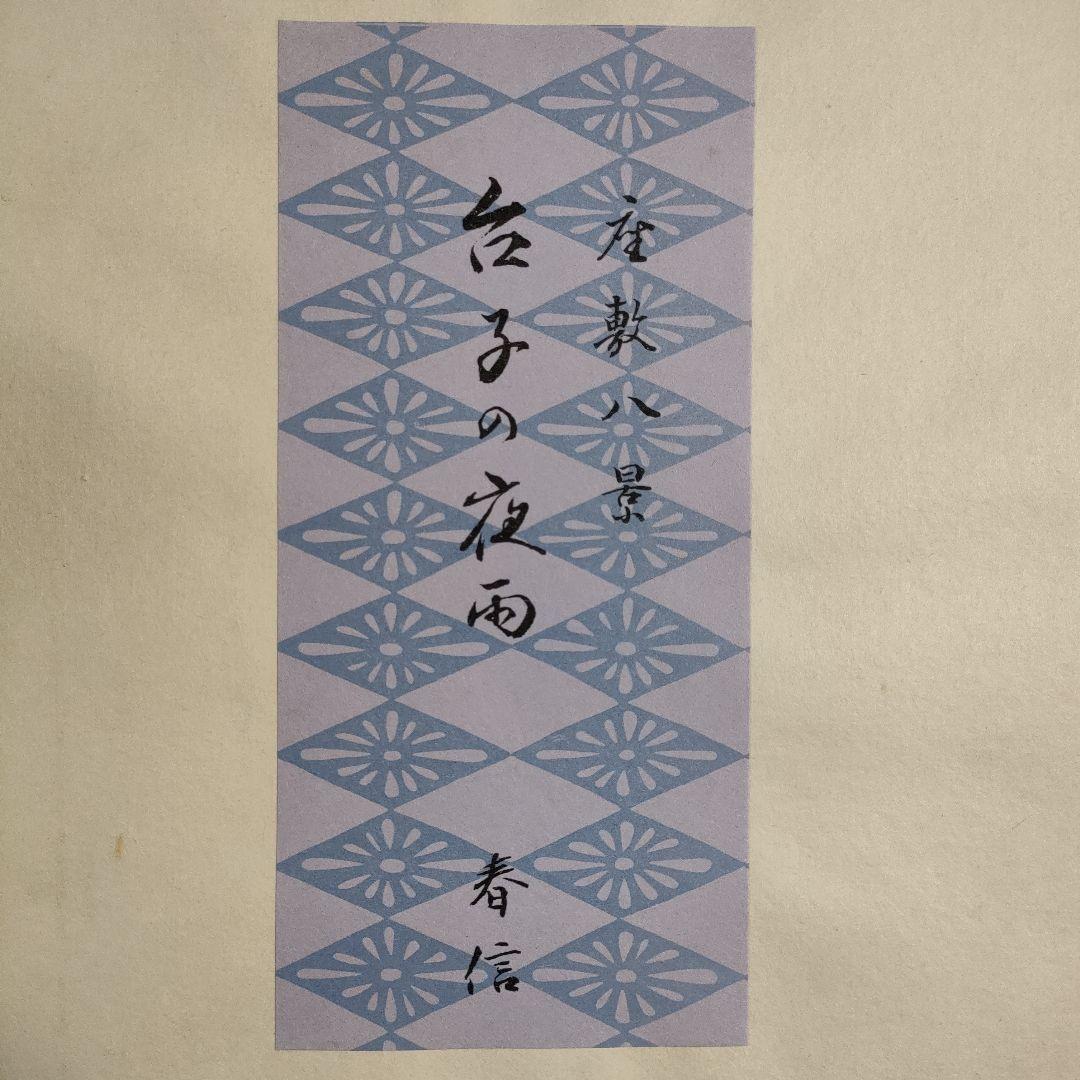 座敷八景
台子の夜雨
春信